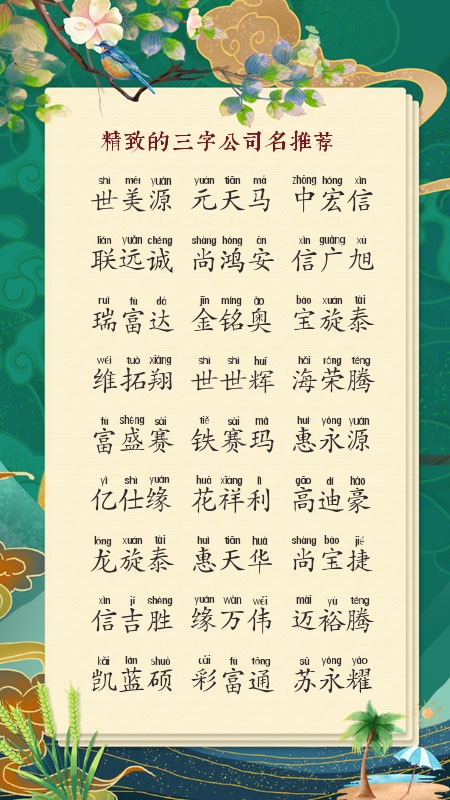 精致的三字公司名推荐
shì měi yuán yuán tiān mǎ zhōng hóng xìn
世美源 元天马 中宏信
lián yuǎn chéng shàng hóng ān xìn guǎng xù
联远诚 尚鸿安 信广旭
ruì fù dá jīn míng ào bǎo xuán tài
瑞富达 金铭奥 宝旋泰
wéi tuò xiáng shì shì huī hǎi róng téng
维拓翔 世世辉 海荣腾
fù shèng sài tiě sài mǎ huì yǒng yuán
富盛赛 铁赛玛 惠永源
yì shì yuán huā xiáng lì gāo dí háo
亿仕缘 花祥利 高迪豪
lóng xuán tài huì tiān huá shàng bǎo jié
龙旋泰 惠天华 尚宝捷
xìn jí shèng yuán wàn wěi mài yù téng
信吉胜 缘万伟 迈裕腾
kǎi lán shuò cǎi fù tōng sū yǒng yào
凯蓝硕 彩富通 苏永耀